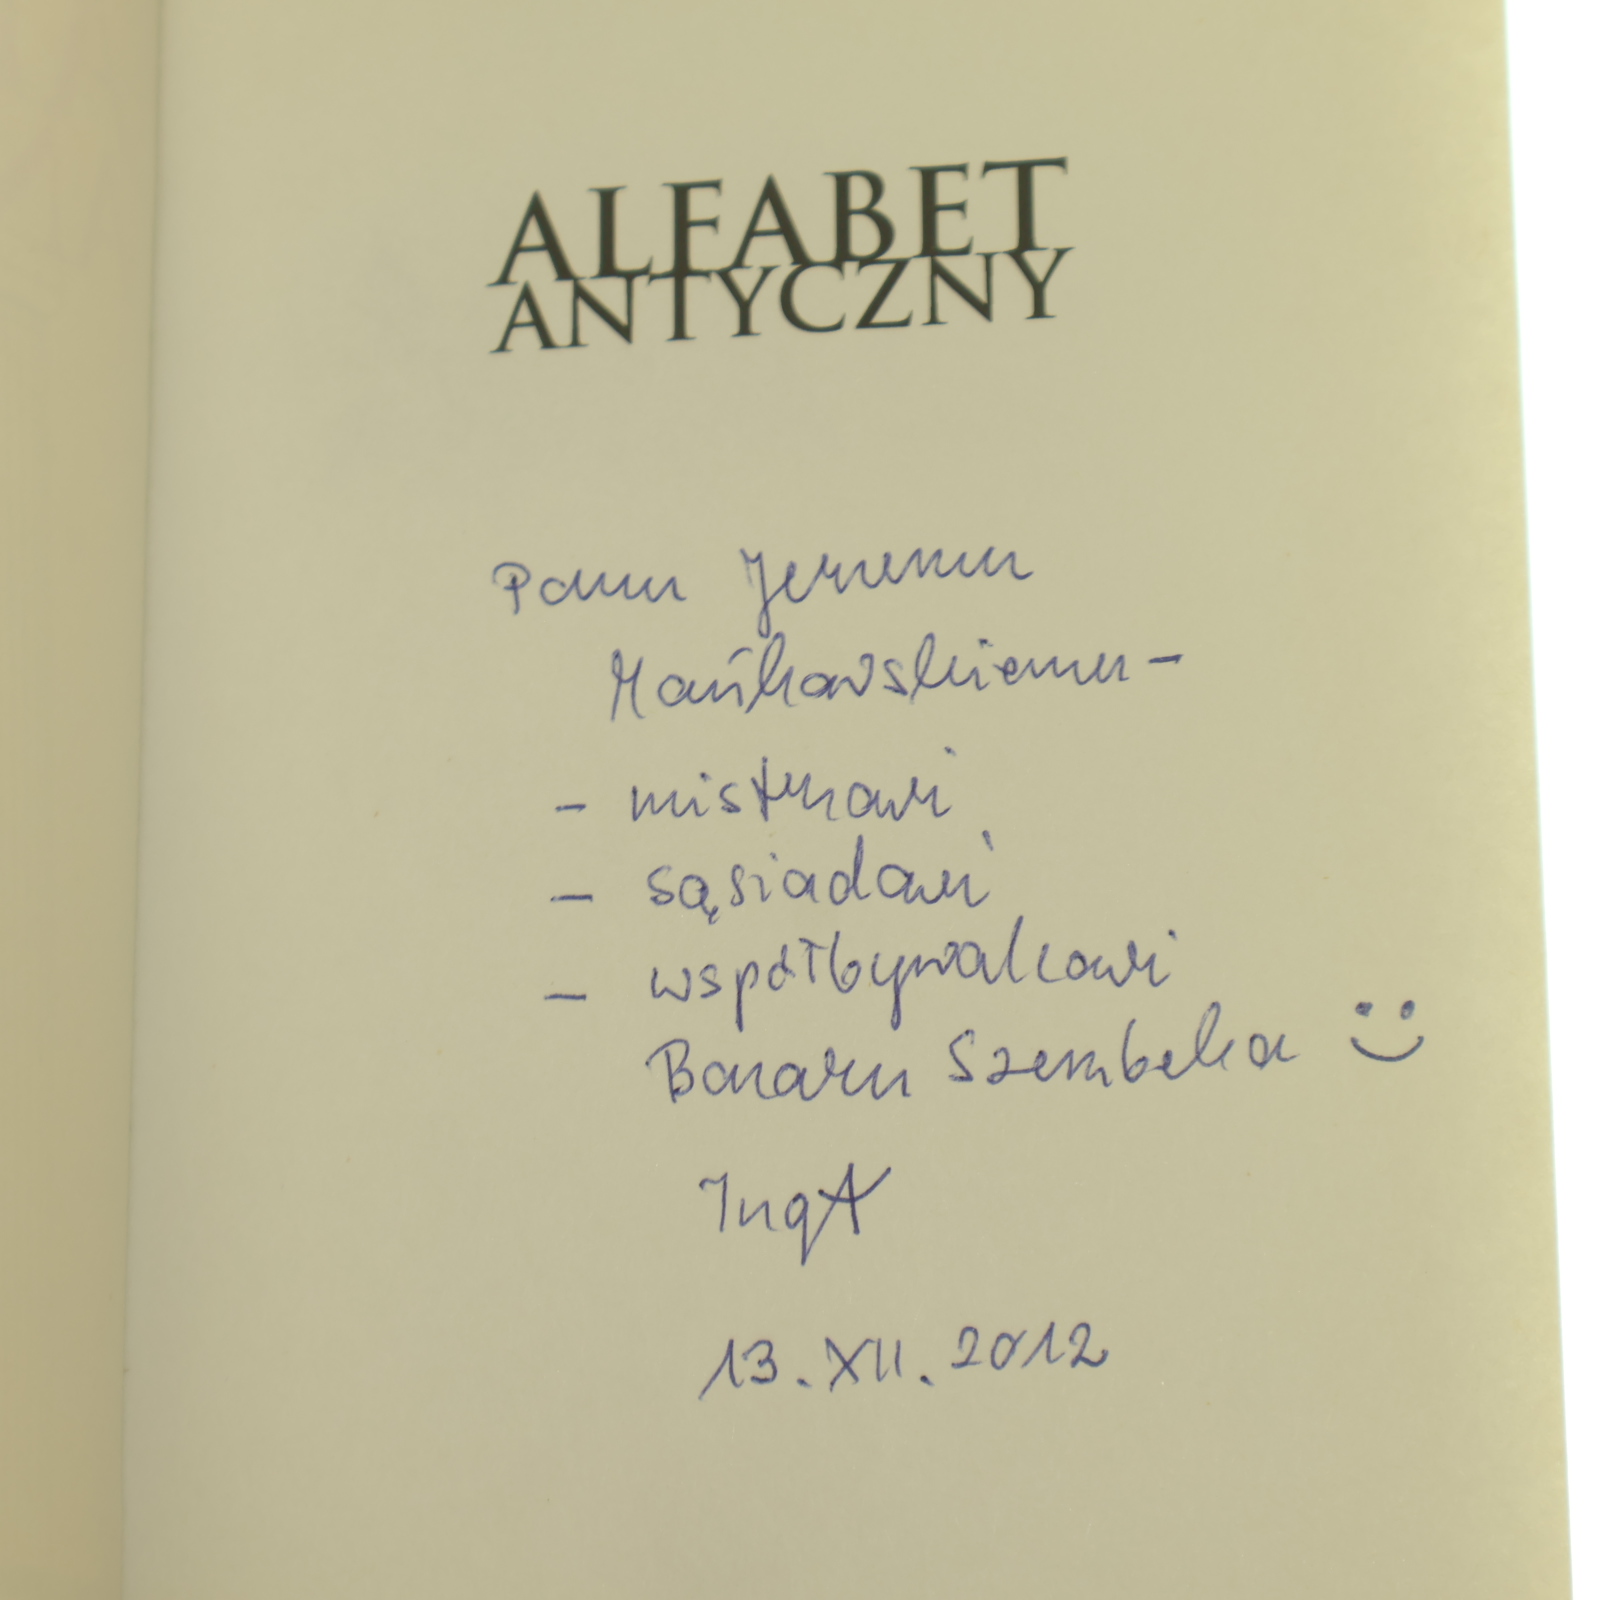 ALFABET
ANTYCZNY
Panu Jerzemu
Mańkowskiemu -
- mistrzowi
- sąsiadowi
- współbywalcowi
Bazaru Szembeka :)
IngA
13. XII. 2012